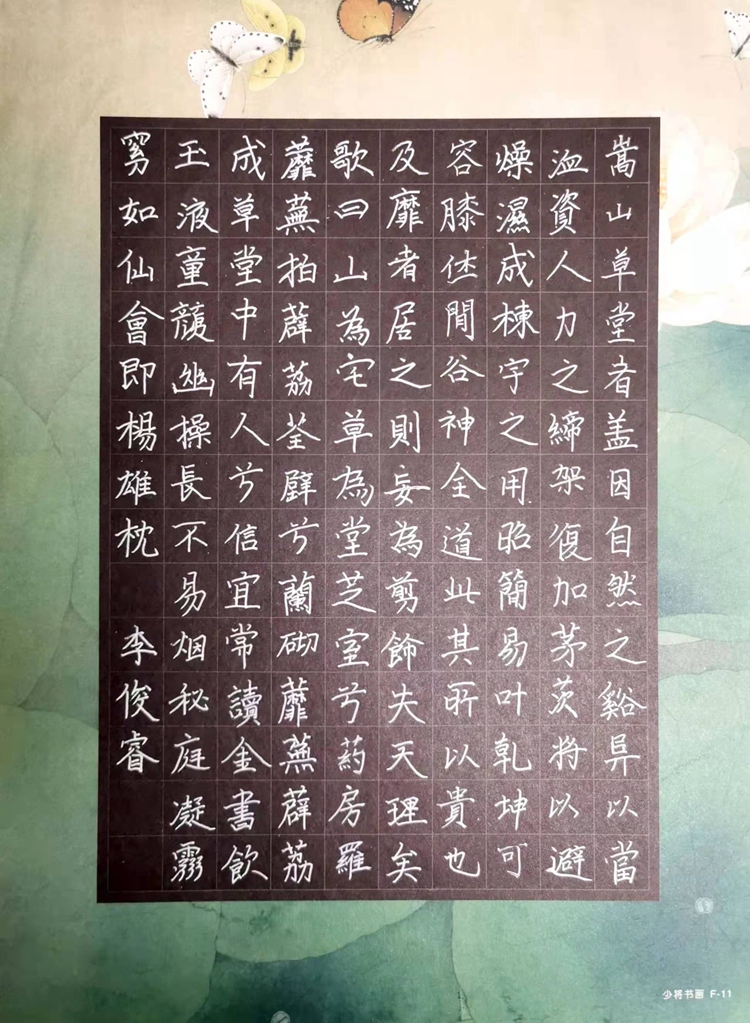 嵩山草堂者盖因自然之谿异以當
洫資人力之締架復加茅茨將以避
燥濕成棟宇之用昭簡易叶乾坤可
容膝休閒谷神全道此其所以貴也
及靡者居之則妄為剪飾失天理矣
歌曰山為宅草為堂芝室兮葯房羅
蘼蕪拍薜荔荃壁兮蘭砌蘼蕪薜荔
成草堂中有人兮信宜常讀金書飲
玉液童顏幽操長不易烟秘庭凝霧
窈如仙會即楊雄枕 李俊睿
少将书画 F-11